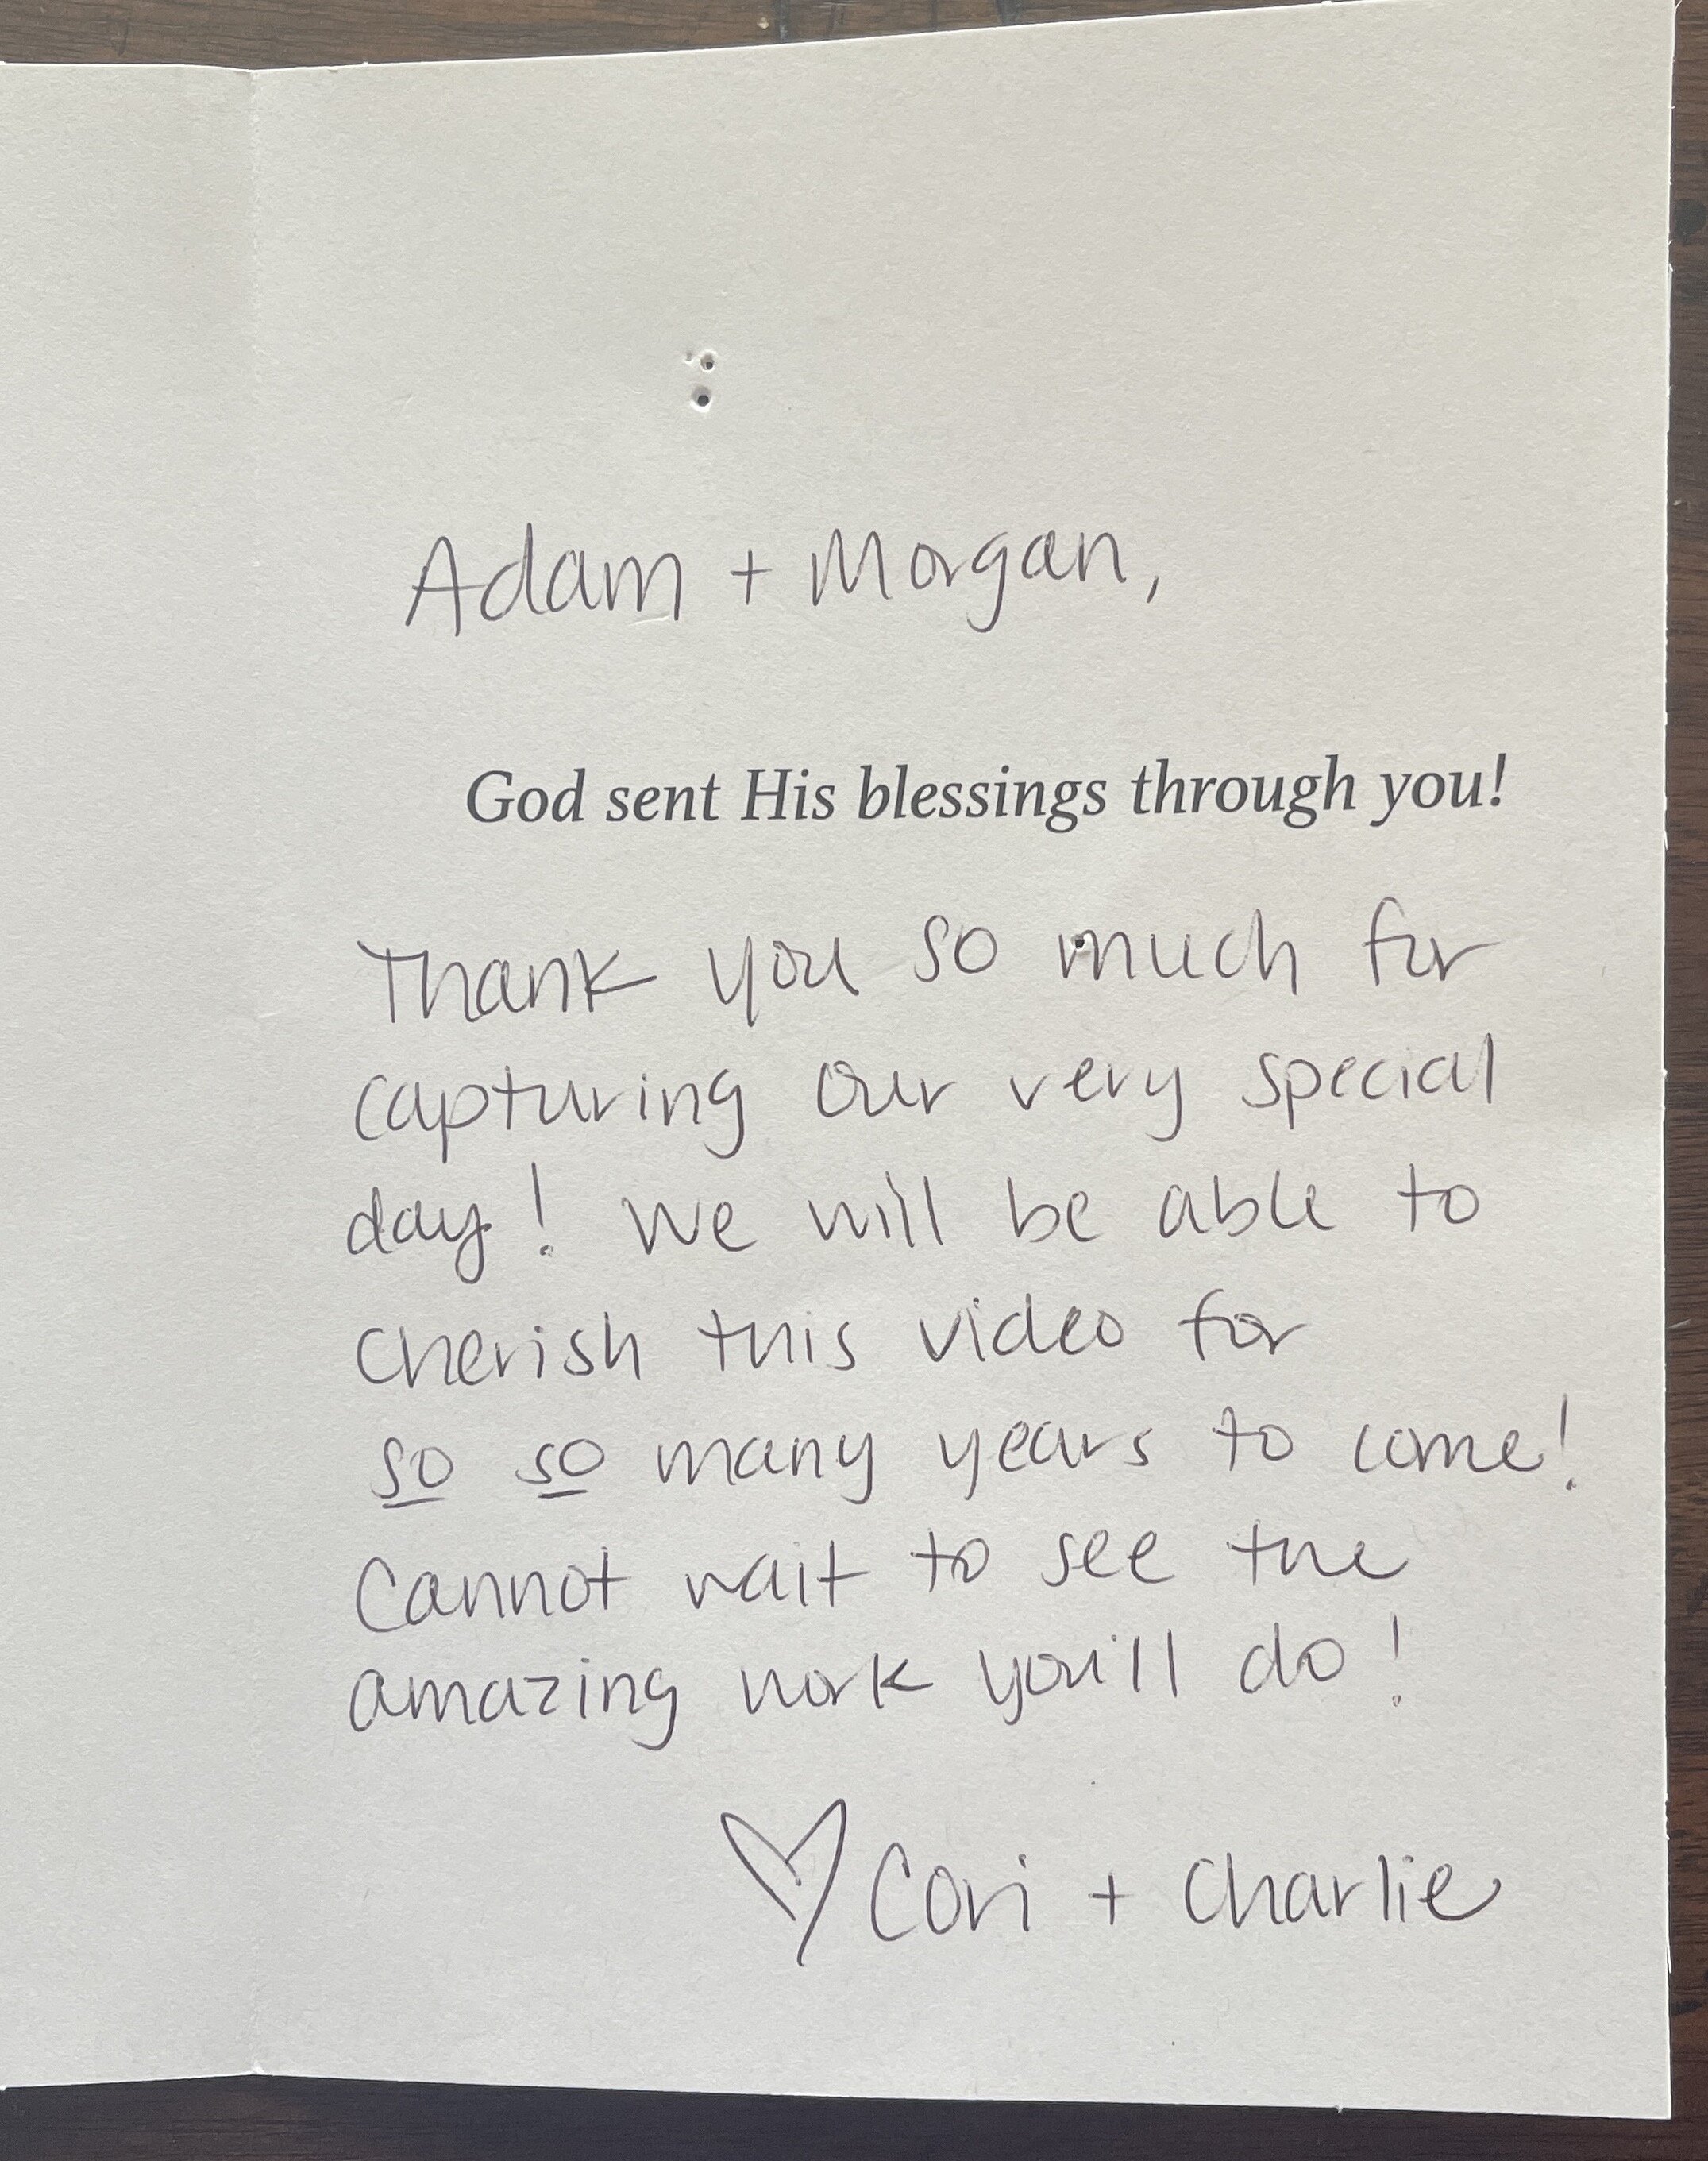 Adam + Morgan,
God sent His blessings through you!
Thank you so much for
capturing our very special
day! We will be able to
cherish this video for
so so many years to come!
Cannot wait to see the
amazing work you'll do!
♡ Cori + Charlie